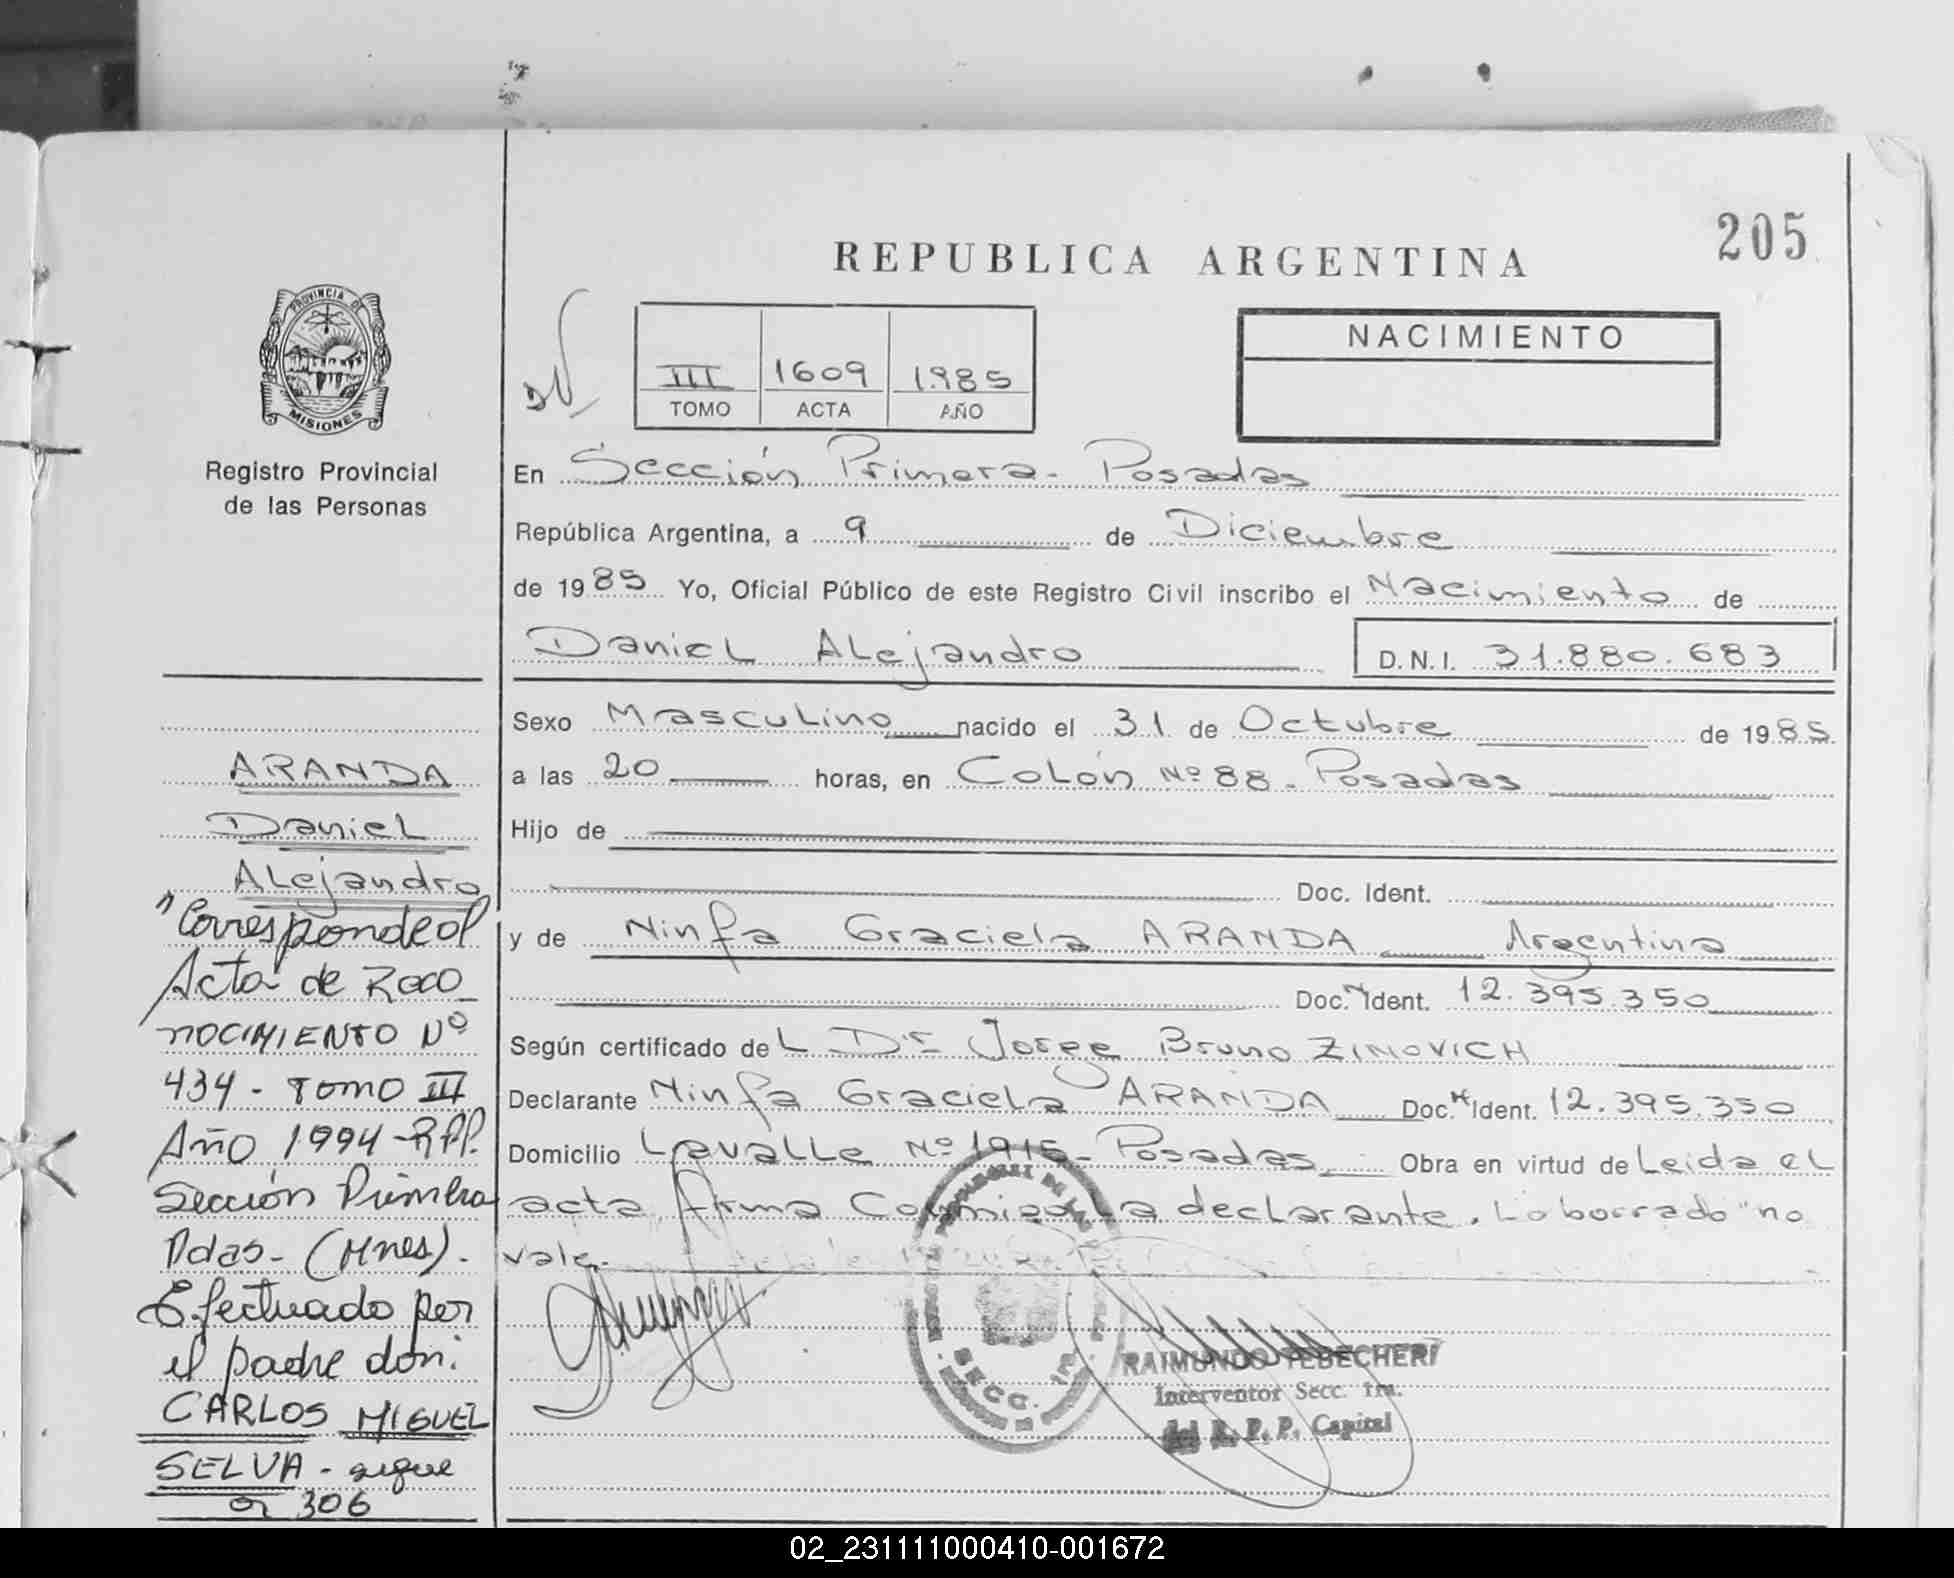 205
REPUBLICA ARGENTINA
PROVINCIA DE
MISIONES
Registro Provincial
de las Personas
III 1609 1985
TOMO ACTA AÑO
NACIMIENTO
En Sección Primera - Posadas
República Argentina, a 9 de Diciembre
de 1985 Yo, Oficial Público de este Registro Civil inscribo el Nacimiento de
Daniel Alejandro D.N.I. 31.880.683
Sexo Masculino nacido el 31 de Octubre de 1985
a las 20 horas, en Colón Nº 88 - Posadas
Hijo de
Doc. Ident.
y de Ninfa Graciela ARANDA Argentina
Doc. Ident. 12.395.350
Según certificado del Dr Jorge Bruno ZINOVICH
Declarante Ninfa Graciela ARANDA Doc. Ident. 12.395.350
Domicilio Lavalle Nº 1915 - Posadas Obra en virtud de Leida el
acta, firma conmigo la declarante. Lo borrado "no
vale.
SECC. 1ra
RAIMUNDO TEBECHERI
Interventor Secc. 1ra.
del R. P. P. Capital
ARANDA
Daniel
Alejandro
"Corresponde al
Acta de Reco
nocimiento Nº
434 - Tomo III
Año 1994 - R.P.P.
Sección Primera
Pdas - (Mnes).
Efectuado por
el padre don:
CARLOS MIGUEL
SELVA - sigue
306
02_231111000410-001672